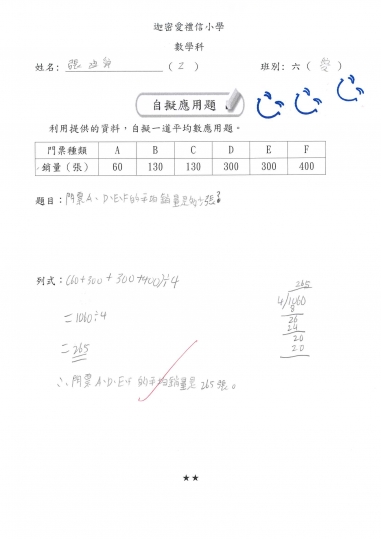 迦密愛禮信小學
數學科
姓名: 張 (2) 班別: 六 (愛)
自擬應用題
利用提供的資料，自擬一道平均數應用題。
門票種類 A B C D E F
銷量（張） 60 130 130 300 300 400
題目：門票A、D、E、F的平均銷量是多少張?
列式：(60+300+300+400)÷4
=1060÷4
=265
∴門票A、D、E、F的平均銷量是265張。
265
4/1060
8
26
24
20
20
★★